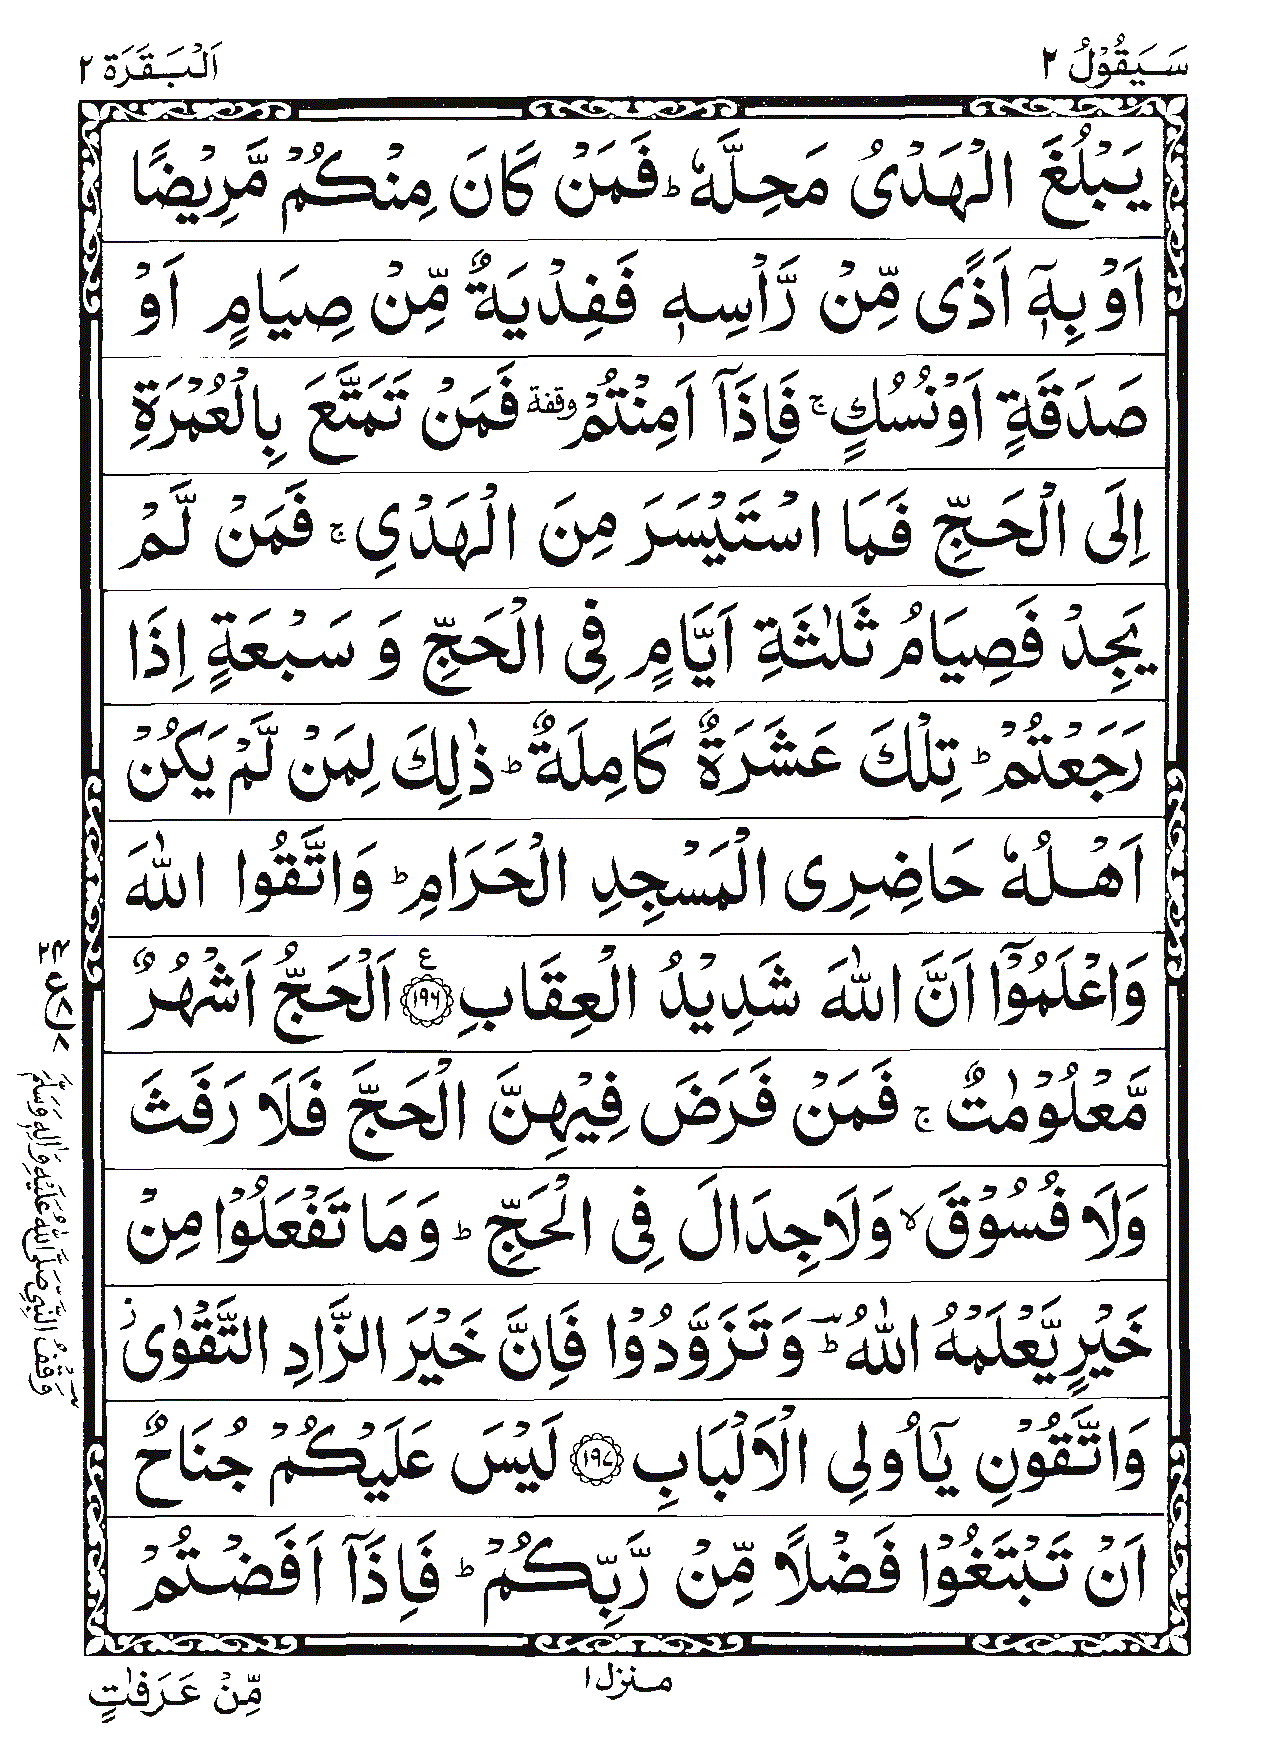 سَيَقُوْلُ ٢
اَلْبَقَرَة ٢
يَبْلُغَ الْهَدْىُ مَحِلَّهٗ ؕ فَمَنْ كَانَ مِنْكُمْ مَّرِيْضًا
اَوْ بِهٖۤ اَذًى مِّنْ رَّاْسِهٖ فَفِدْيَةٌ مِّنْ صِيَامٍ اَوْ
صَدَقَةٍ اَوْ نُسُكٍ ۚ فَاِذَاۤ اَمِنْتُمْ وقفة فَمَنْ تَمَتَّعَ بِالْعُمْرَةِ
اِلَى الْحَجِّ فَمَا اسْتَيْسَرَ مِنَ الْهَدْىِ ۚ فَمَنْ لَّمْ
يَجِدْ فَصِيَامُ ثَلٰثَةِ اَيَّامٍ فِى الْحَجِّ وَ سَبْعَةٍ اِذَا
رَجَعْتُمْ ؕ تِلْكَ عَشَرَةٌ كَامِلَةٌ ؕ ذٰلِكَ لِمَنْ لَّمْ يَكُنْ
اَهْلُهٗ حَاضِرِى الْمَسْجِدِ الْحَرَامِ ؕ وَاتَّقُوا اللّٰهَ
وَاعْلَمُوْۤا اَنَّ اللّٰهَ شَدِيْدُ الْعِقَابِ ع ١٩٦ اَلْحَجُّ اَشْهُرٌ
مَّعْلُوْمٰتٌ ۚ فَمَنْ فَرَضَ فِيْهِنَّ الْحَجَّ فَلَا رَفَثَ
وَلَا فُسُوْقَ ۙ وَلَا جِدَالَ فِى الْحَجِّ ؕ وَمَا تَفْعَلُوْا مِنْ
خَيْرٍ يَّعْلَمْهُ اللّٰهُ ؔؕ وَتَزَوَّدُوْا فَاِنَّ خَيْرَ الزَّادِ التَّقْوٰى ز
وَاتَّقُوْنِ يٰۤاُولِى الْاَلْبَابِ ١٩٧ لَيْسَ عَلَيْكُمْ جُنَاحٌ
اَنْ تَبْتَغُوْا فَضْلًا مِّنْ رَّبِّكُمْ ؕ فَاِذَاۤ اَفَضْتُمْ
وَقْفُ النَّبِيِّ صَلَّى اللّٰهُ عَلَيْهِ وَاٰلِهٖ وَسَلَّمَ
منزل ١
مِّنْ عَرَفٰتٍ